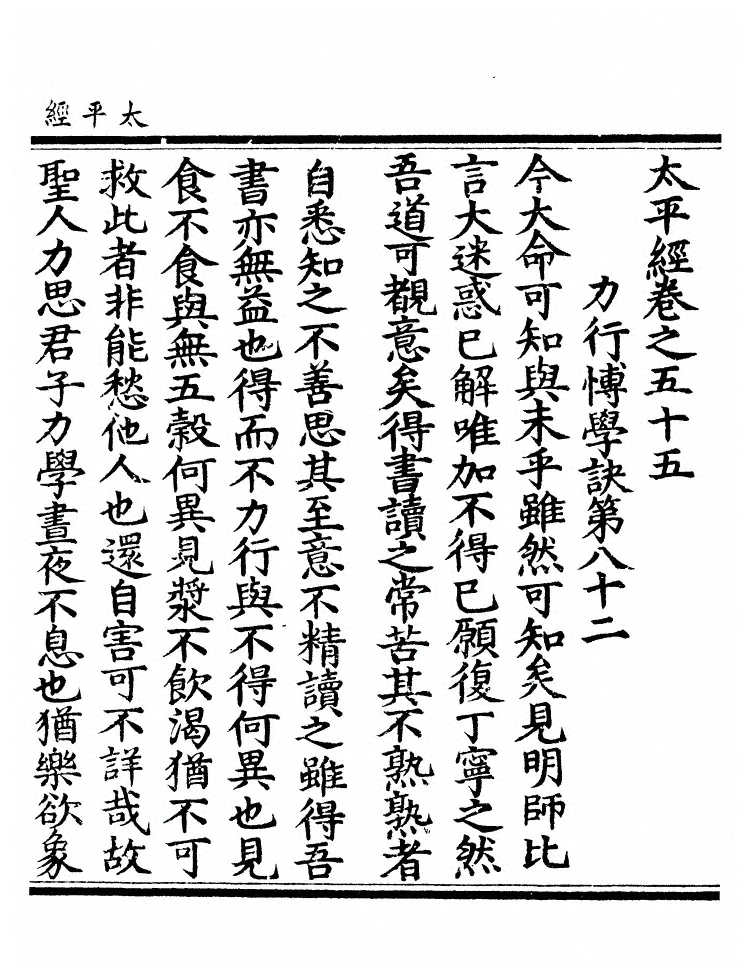 太平經
太平經卷之五十五
力行博學訣第八十二
今大命可知與未乎雖然可知矣見明師比
言大迷惑已解唯加不得已願復丁寧之然
吾道可覩意矣得書讀之常苦其不熟熟者
自悉知之不善思其至意不精讀之雖得吾
書亦無益也得而不力行與不得何異也見
食不食與無五穀何異見漿不飲渴猶不可
救此者非能愁他人也還自害可不詳哉故
聖人力思君子力學晝夜不息也猶樂欲象